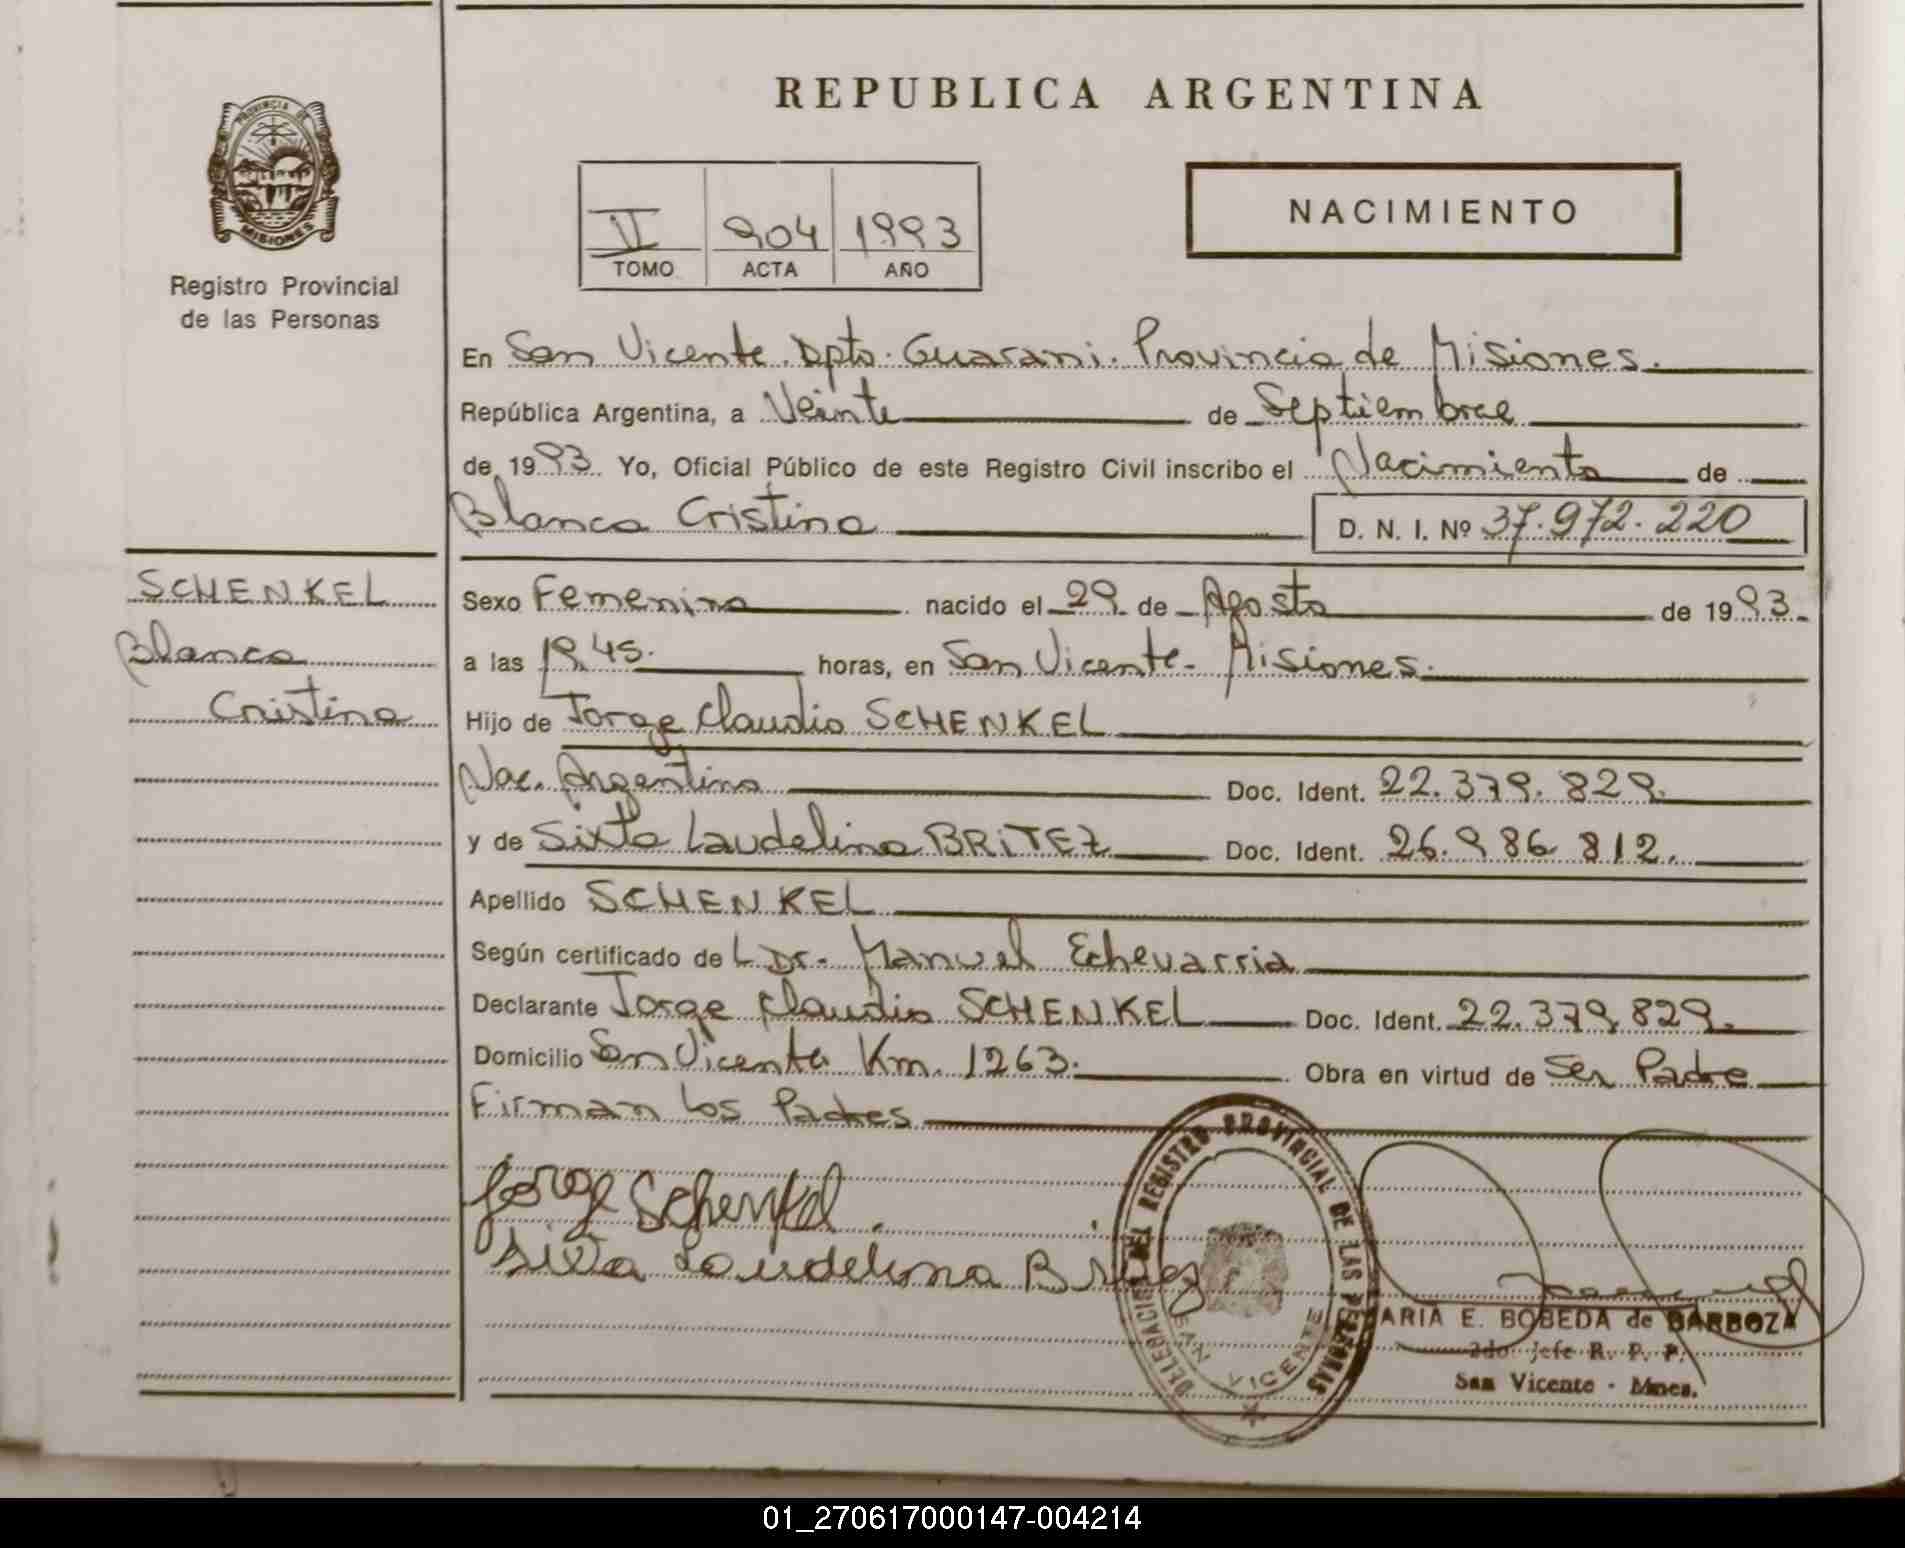 REPUBLICA ARGENTINA
PROVINCIA DE
MISIONES
Registro Provincial
de las Personas
II 904 1993
TOMO ACTA AÑO
NACIMIENTO
En San Vicente. Dpto. Guarani. Provincia de Misiones.
República Argentina, a Veinte de Septiembre
de 1993. Yo, Oficial Público de este Registro Civil inscribo el Nacimiento de
Blanca Cristina D. N. I. Nº 37.972.220
SCHENKEL
Blanca
Cristina
Sexo Femenino nacido el 29 de Agosto de 1993.
a las 19,45. horas, en San Vicente - Misiones.
Hijo de Jorge Claudio SCHENKEL
Nac. Argentina Doc. Ident. 22.379.829.
y de Sixta Laudelina BRiTEZ Doc. Ident. 26.986.812.
Apellido SCHENKEL
Según certificado de L Dr. Manuel Echevarria
Declarante Jorge Claudio SCHENKEL Doc. Ident. 22.379.829.
Domicilio San Vicente Km. 1263. Obra en virtud de Ser Padre
Firman los Padres
Jorge Schenkel.
Sixta Laudelina Britez
DELEGACION DEL REGISTRO PROVINCIAL DE LAS PERSONAS
SAN VICENTE
ARIA E. BOBEDA de BARBOZA
2do. Jefe R. P. P.
San Vicente - Mnes.
01_270617000147-004214